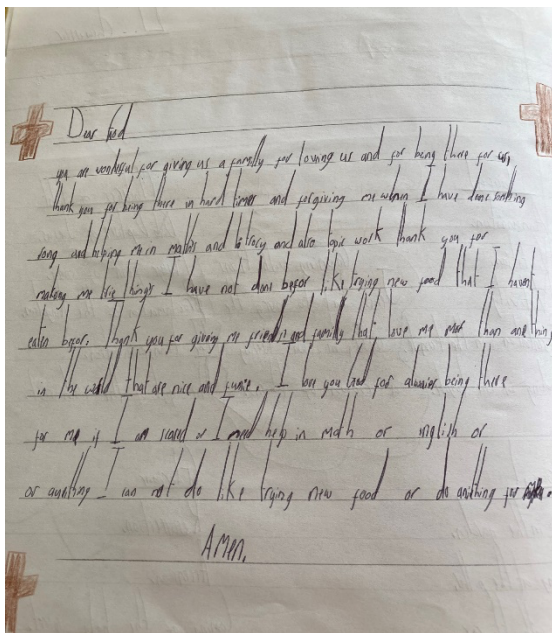 Dear God
you are wonderful for giving us a family for loving us and for being there for us,
thank you for being there in hard times and forgiving me when I have done
song and helping me in maths and also topic work thank you for
making me things I have not done befor like trying new food that I havent
eaten befor. thank you for giving me friends and family that love me than
in the that are nice and I love you God for being there
for me if I am scared or I need help in math or inglish or
or I can not do like trying new food or do for
AMen.